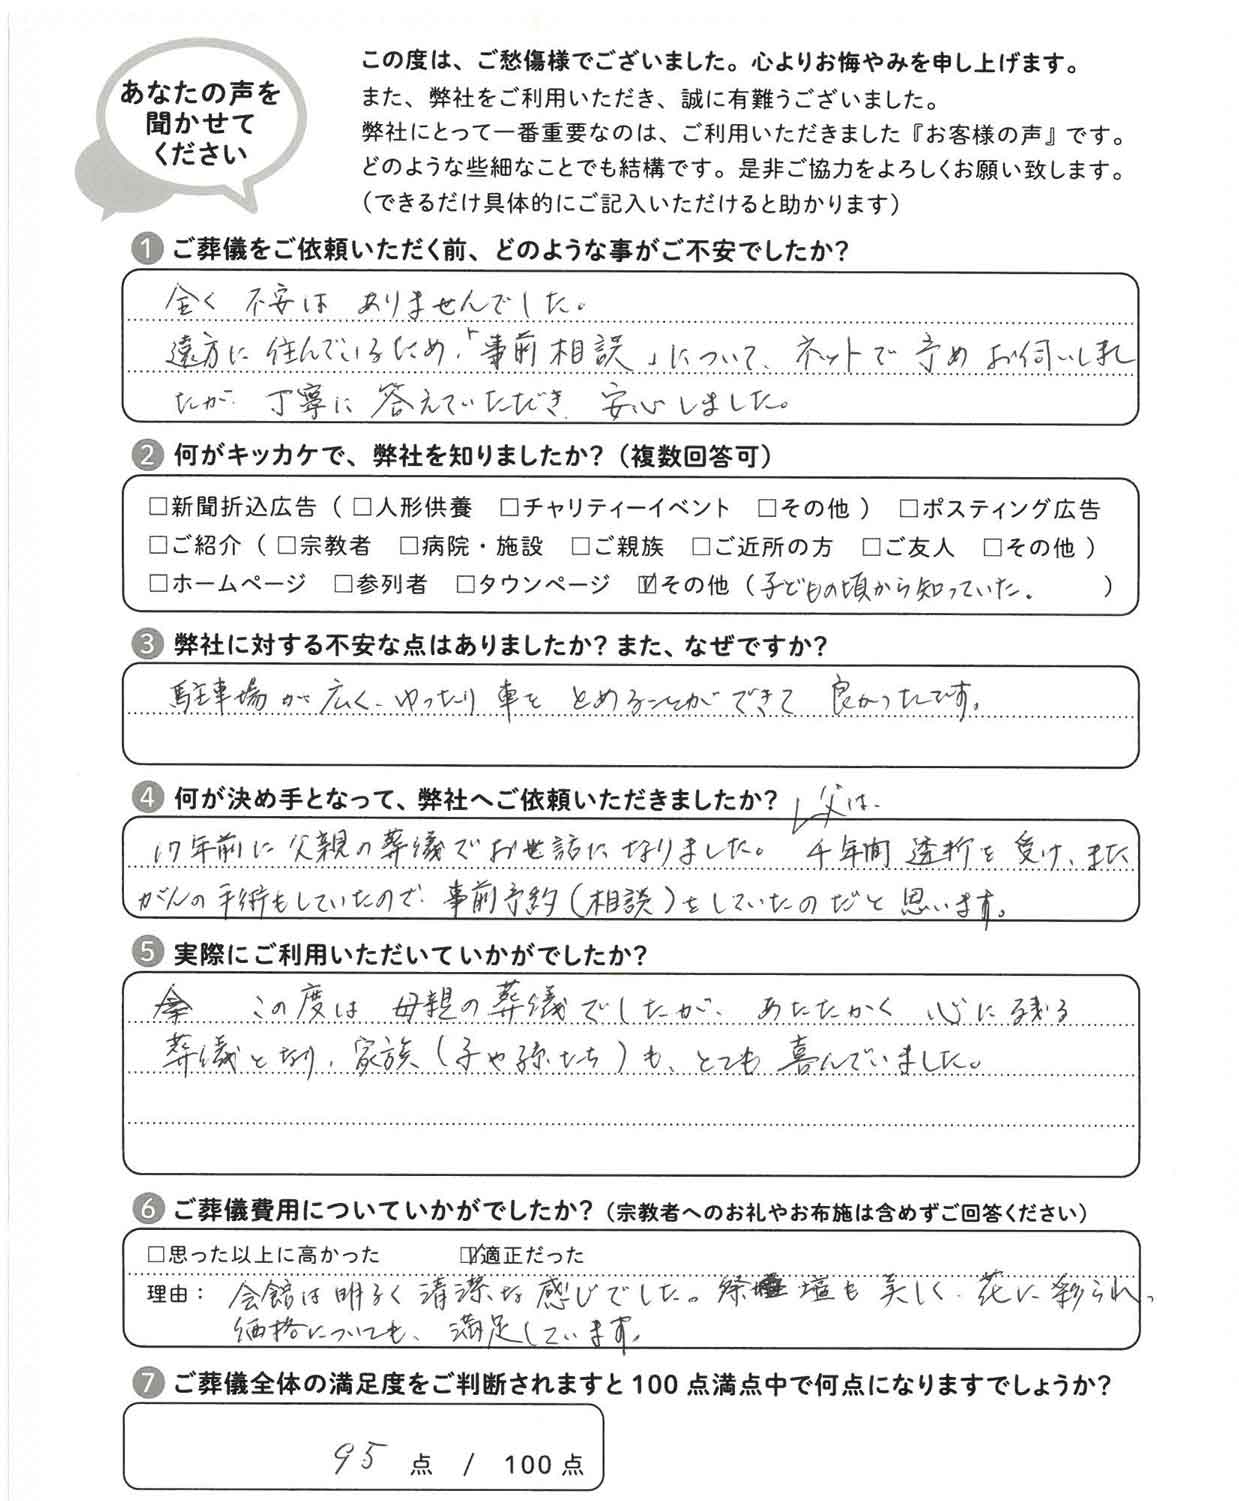 あなたの声を
聞かせて
ください
この度は、ご愁傷様でございました。心よりお悔やみを申し上げます。
また、弊社をご利用いただき、誠に有難うございました。
弊社にとって一番重要なのは、ご利用いただきました『お客様の声』です。
どのような些細なことでも結構です。是非ご協力をよろしくお願い致します。
（できるだけ具体的にご記入いただけると助かります）
1 ご葬儀をご依頼いただく前、どのような事がご不安でしたか？
全く不安はありませんでした。
遠方に住んでいるため、「事前相談」について、ネットで予めお伺いしまし
たが、丁寧に答えていただき、安心しました。
2 何がキッカケで、弊社を知りましたか？（複数回答可）
□新聞折込広告（□人形供養 □チャリティーイベント □その他） □ポスティング広告
□ご紹介（□宗教者 □病院・施設 □ご親族 □ご近所の方 □ご友人 □その他）
□ホームページ □参列者 □タウンページ ☑その他（子どもの頃から知っていた。）
3 弊社に対する不安な点はありましたか？また、なぜですか？
駐車場が広く、ゆったり車をとめることができて良かったです。
4 何が決め手となって、弊社へご依頼いただきましたか？
父は、
17年前に父親の葬儀でお世話になりました。4年間透析を受け、また
がんの手術もしていたので、事前予約（相談）をしていたのだと思います。
5 実際にご利用いただいていかがでしたか？
この度は母親の葬儀でしたが、あたたかく心に残る
葬儀となり、家族（子や孫たち）も、とても喜んでいました。
6 ご葬儀費用についていかがでしたか？（宗教者へのお礼やお布施は含めずご回答ください）
□思った以上に高かった ☑適正だった
理由： 会館は明るく清潔な感じでした。祭壇も美しく、花に彩られ、
価格についても、満足しています。
7 ご葬儀全体の満足度をご判断されますと100点満点中で何点になりますでしょうか？
95 点 / 100点